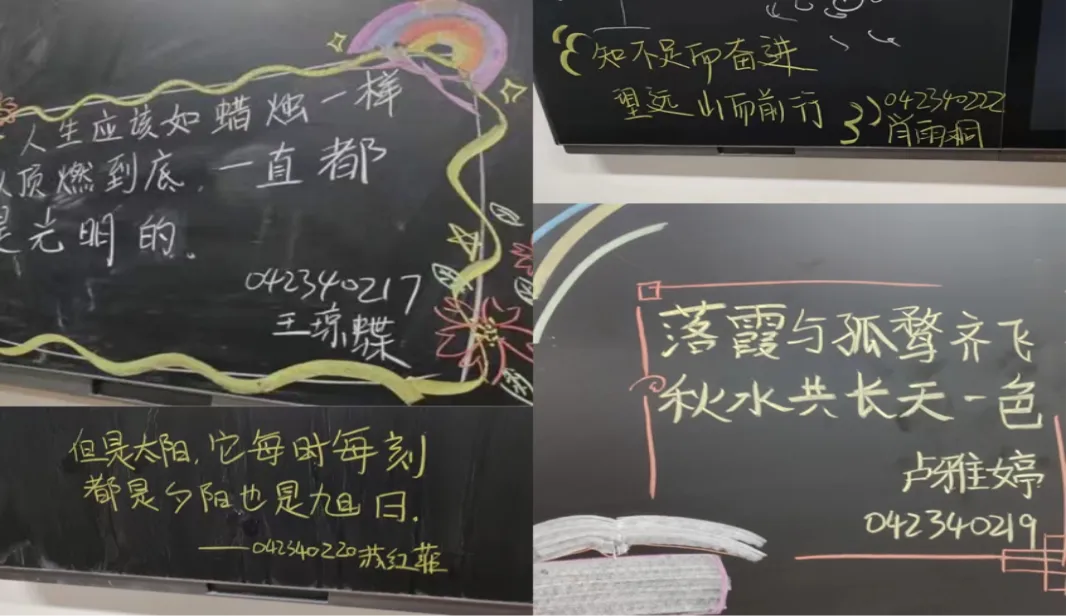 人生应该如蜡烛一样
从顶燃到底，一直都
是光明的。
042340217
王琼蝶
知不足而奋进
望远山而前行
042340222
肖雨桐
但是太阳，它每时每刻
都是夕阳也是旭日．
——042340220 红菲
落霞与孤鹜齐飞
秋水共长天一色
卢雅婷
042340219